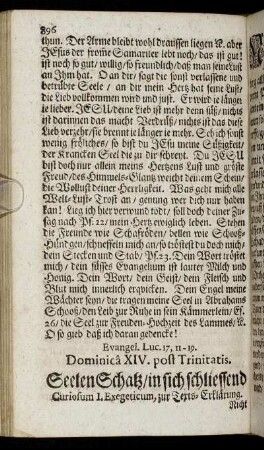 896
thun. Der Arme bleibt wohl draussen liegen &. aber
JEsus der from̃e Samariter lebt noch/ das ist gut!
ist noch so gut/ willig/ so freundlich/ daß man seine Lust
an Ihm hat. O an dir/ sagt die sonst verlassene und
betrübte Seele/ an dir mein Hertz hat seine Lust/
die Lieb vollkommen wird und just. Er wird ie länger
ie lieber. JESU deine Lieb ist mehr denn süß/ nichts
ist darinnen das macht Verdruß/ nichts ist das die
Lieb verzehr/ sie brennt ie länger ie mehr. Seh ich sonst
wenig fröliches/ so bist du JEsu meine Süßigkeit/
der Krancken Seel die zu dir schreyt. Du JESU
bist doch nur allein meins Hertzens Lust und gröste
Freud/ des Himmels-Glantz weicht deinem Schein/
die Wollust deiner Herrligkeit. Was geht mich alle
Welt-Lust-Trost an/ genung wer dich nur haben
kan! Lieg ich hier verwundt todt/ soll doch deiner Zu-
sag nach Ps. 22/ mein Hertz ewiglich leben. Stehen
die Freunde wie Schafröden/ bellen wie Schooß-
Hündgen/ schneffeln mich an/ so tröstest du doch mich/
dein Stecken und Stab/ Ps. 23. Dein Wort tröstet
mich/ dein süsses Evangelium ist lauter Milch und
Honig. Dein Wort/ dein Geist/ dein Fleisch und
Blut mich innerlich erquicken. Dein Engel meine
Wächter seyn/ die tragen meine Seel in Abrahams
Schooß/ den Leib zur Ruhe in sein Kämmerlein/ Es.
26/ die Seel zur Freuden-Hochzeit des Lammes/ &.
O so gieb daß ich daran gedencke!
Evangel. Luc. 17, 11-19.
Dominicâ XIV. post Trinitatis.
Seelen Schatz/ in sich schliessend
Curiosum I. Exegeticum, zur Texts-Erklärung.
Nicht